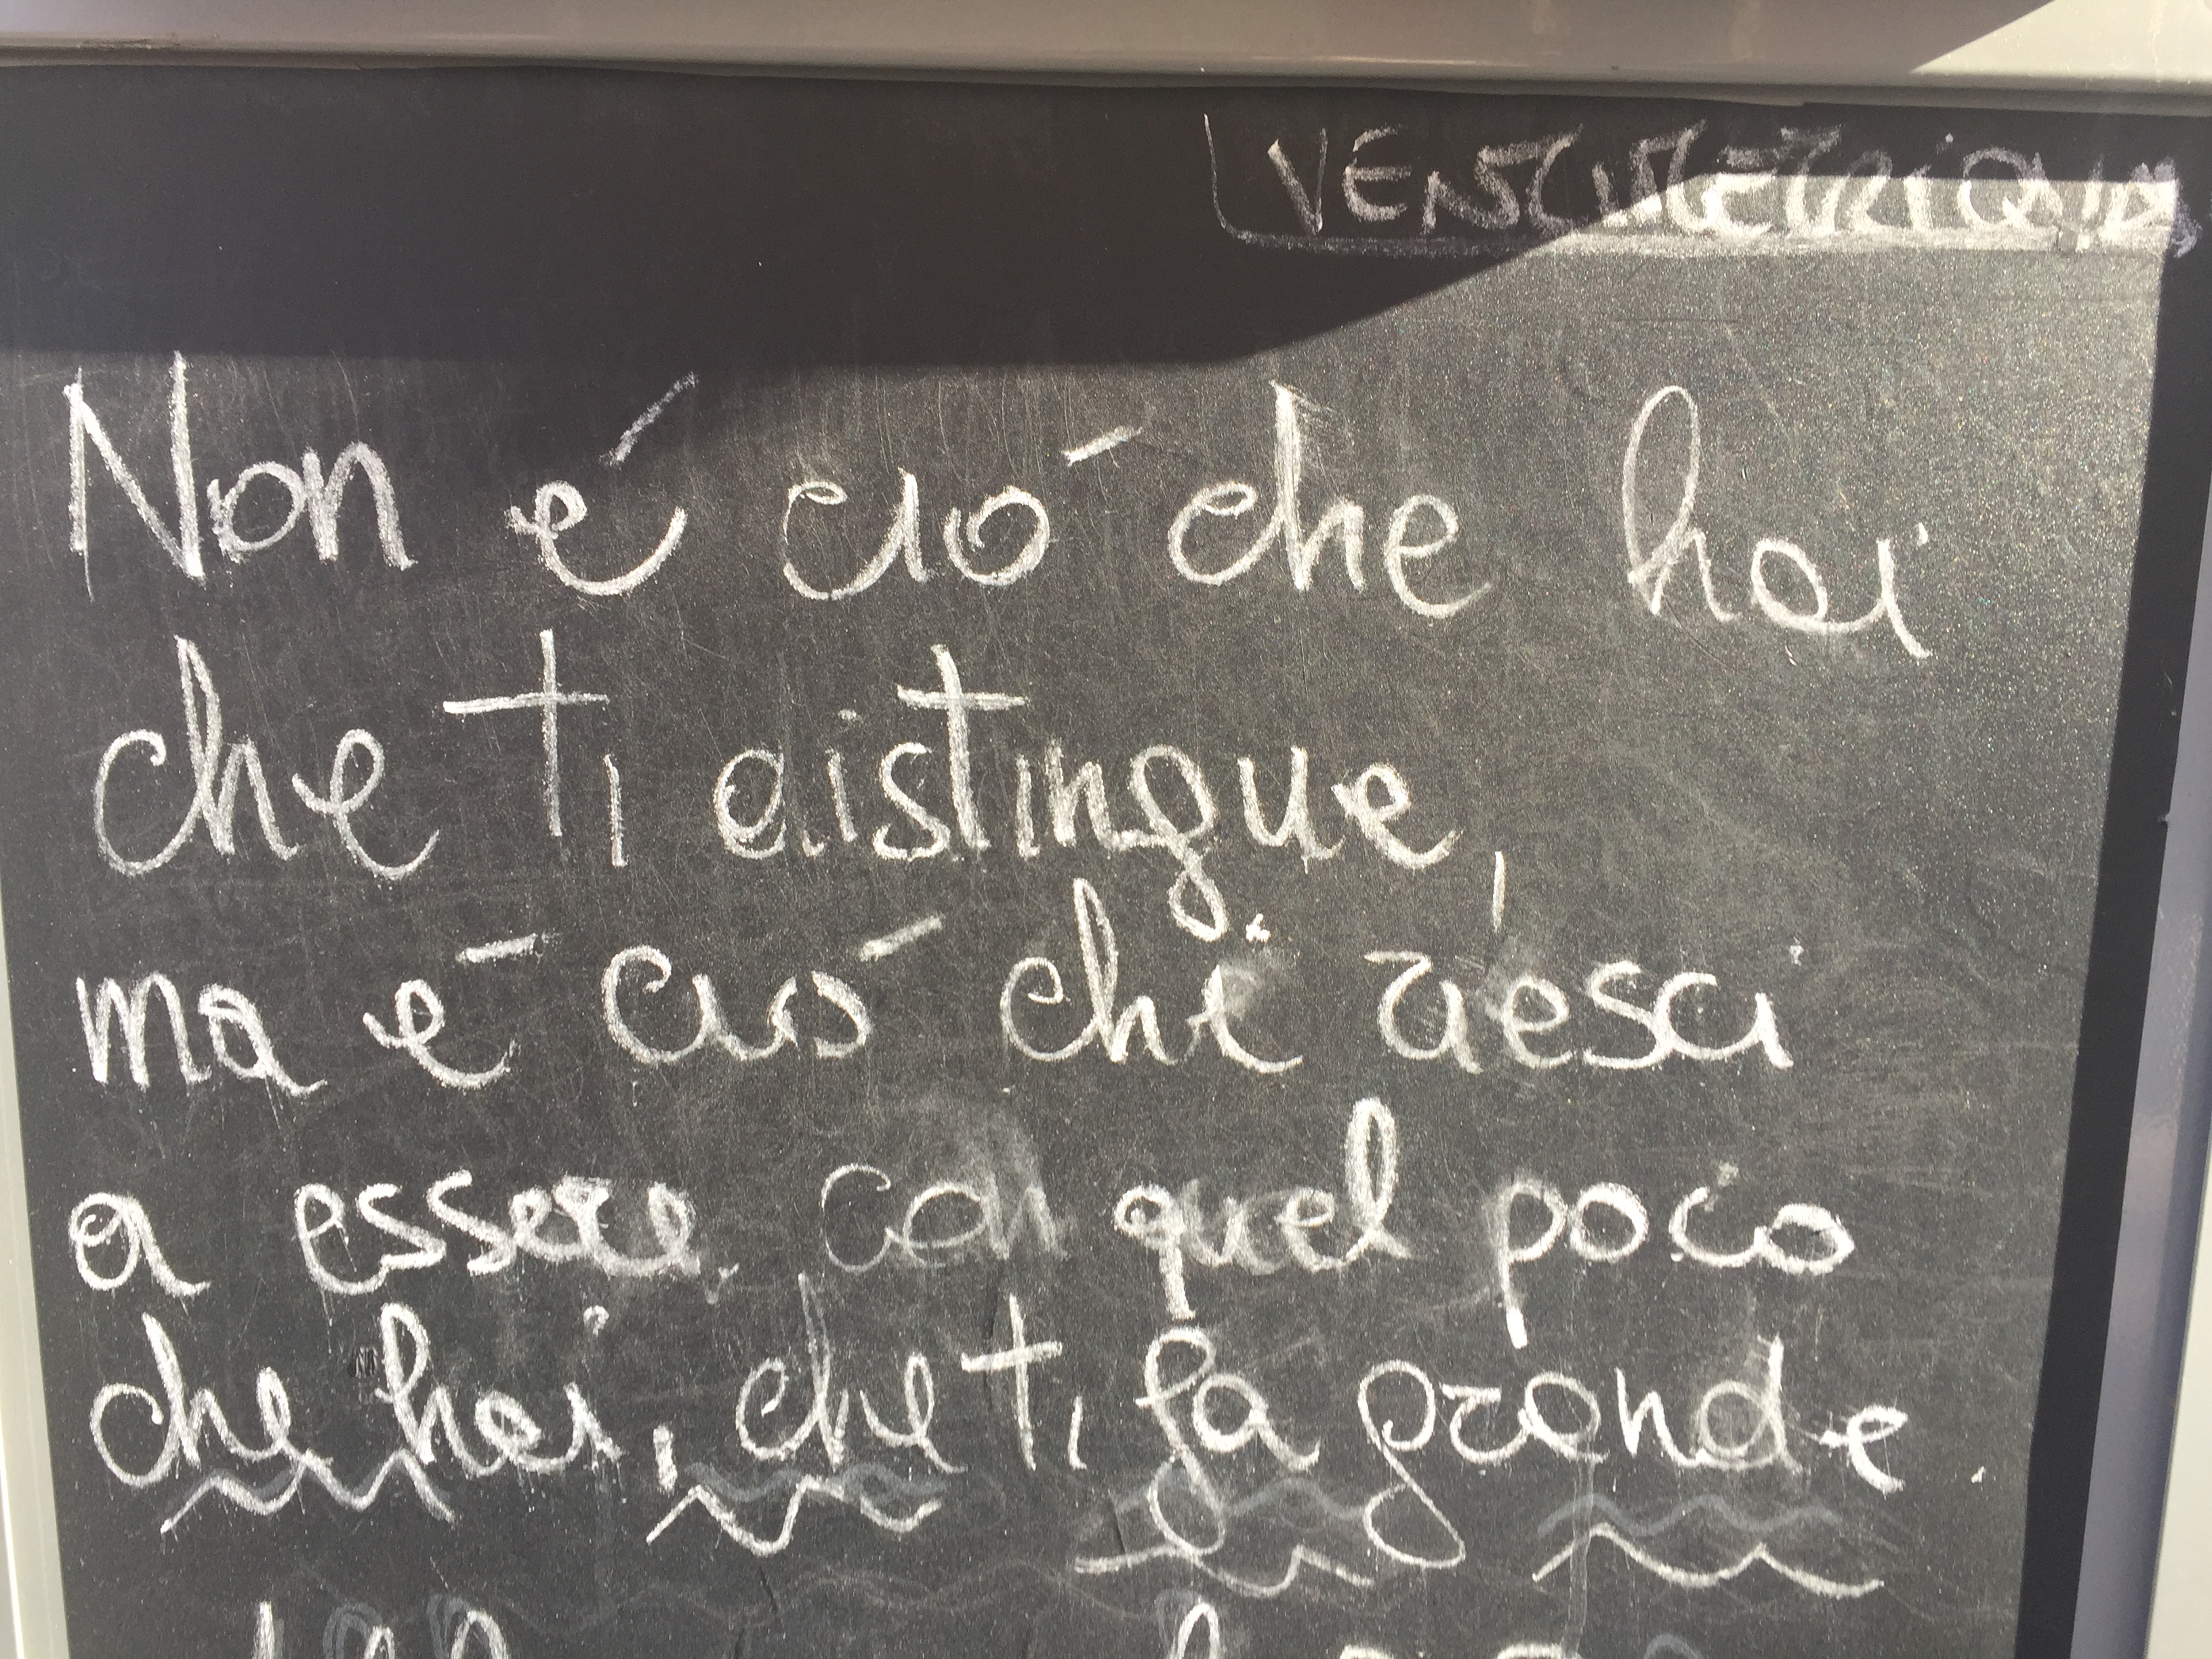 Non é ció che hai
che ti distingue,
ma é ció che riesci
a essere, con quel poco
che hai, che ti fa grande.